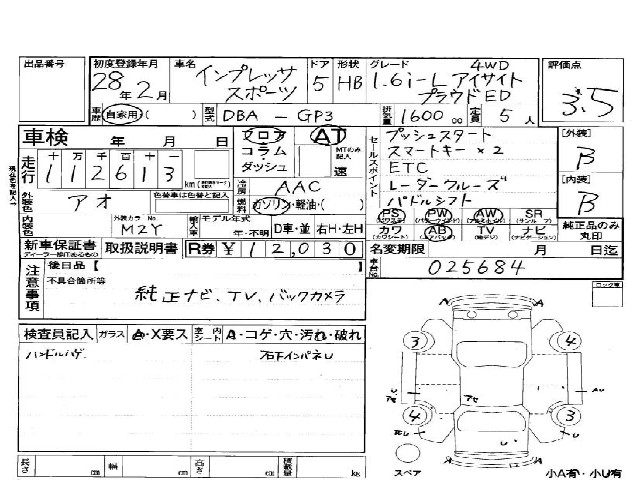 出品番号
初度登録年月
28年2月
車名
インプレッサ
スポーツ
ドア
5
形状
HB
グレード
4WD
1.6i-L アイサイト
プラウドED
評価点
3.5
車歴
自家用 ( )
型式
DBA - GP3
排気量
1600 cc
定員
5人
車検 年 月 日
フロア
コラム
・
ダッシュ
AT
MTのみ記入
速
走行
十 万 千 百 十 一
1 1 2 6 1 3
km
冷房
AAC
燃料
ガソリン・軽油・( )
外装色
アオ
色替車は色替と記入
内装色
外装カラー No.
M2Y
輸入車
モデル年式
年・不明
D車・並 右H・左H
セールスポイント
プッシュスタート
スマートキー×2
ETC
レーダークルーズ
パドルシフト
[外装]
B
[内装]
B
PS PW AW SR
カワ AB TV ナビ
純正品のみ
丸印
新車保証書
取扱説明書
R券
¥12,030
名変期限 月 日迄
車台No.
025684
注意事項
後日品【
不具合箇所等
純正ナビ、TV、バックカメラ
ロック車
検査員記入
ガラス
A・X要ス
室内シート
A・コゲ・穴・汚れ・破れ
ハンドルハゲ
右下インパネU
A
A
3
4
4
3
U
AU
U
U
長さ cm
幅 cm
高さ cm
積載量 kg
スペア
小A有・小U有